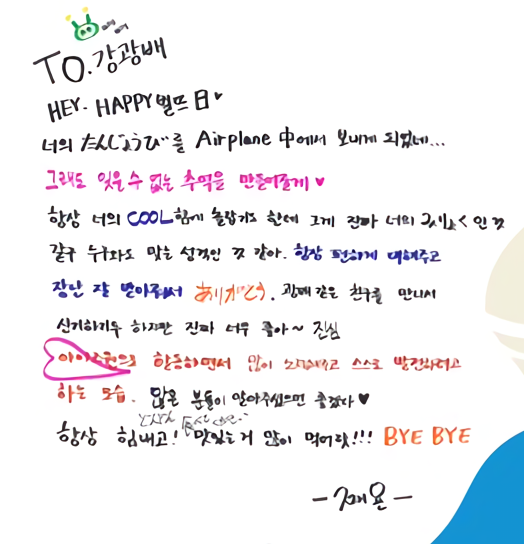 TO. 강광배
HEY. HAPPY벌뜨日♥
너의 たんじょうび를 Airplane 中에서 보내게 되었네...
그래도 잊을 수 없는 추억을 만들어줄게 ♥
항상 너의 COOL함에 놀랍기도 한데 그게 진짜 너의 인 것
같구 누구와도 맞는 성격인 것 같아. 항상 편하게 대해주고
장난 잘 받아줘서 ありがとう. 광배같은 친구를 만나서
신기하기두 하지만 진짜 너무 좋아~ 진심
활동하면서 많이 노력해주고 스스로 발전하려고
하는 모습. 많은 분들이 알아주셨으면 좋겠다♥
항상 힘내고! 맛있는거 많이 먹어랏!!! BYE BYE
-재욘-